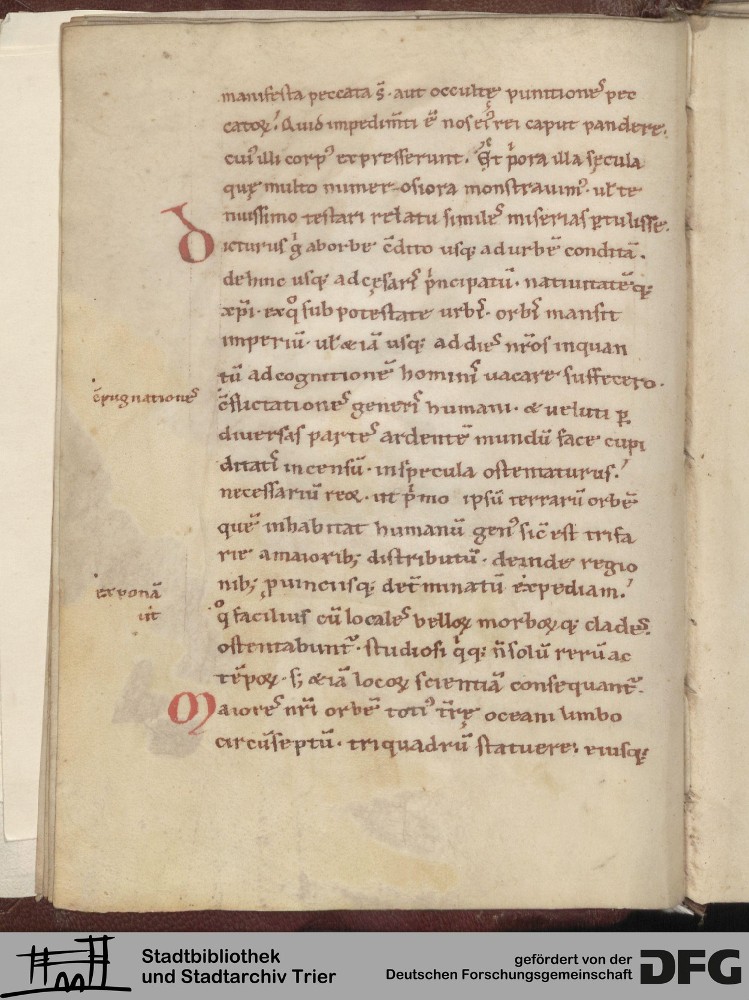 manifesta peccata s̄· aut occultę punitiones pec
catoꝝ. Quid impedim̄ti ē nos ei᷒ rei caput pandere.
cui᷒ illi corp᷒ expresserunt. Et p̍ora illa sęcula
quę multo numerosiora monstrauim᷒· ul̄ te
nuissimo testari relatu similes miserias ꝑtulisse.
Dicturus g̍ ab orbe c̄dito usq; ad urbē conditā.
dehinc usq; ad cęsaris p̍ncipatū· natiuitatēq;
xp̄i· ex q° sub potestate urbis· orbis mansit
imperiū· ul̄ &iā usq; ad dies nr̄os inquan
tū ad cognitionē hominis uacare suffecero·
c̄pugnationes
c̄flictationes generis humani· & ueluti ꝑ
diuersas partes ardentē mundū face cupi
ditatis incensū· inspecula ostentaturus.
necessariū reoꝛ· ut p̍mo ipsū terrarū orbē
quē inhabitat humanū gen᷒ sic̄ est trifa
rie a maiorib; distributū· deinde regio
nib; ꝓuinciisq; det̄minatū expediam.
exponā
ut
q° facilius cū locales belloꝝ morboꝝq; clades
ostentabunt᷑· studiosi q̍q; n̄ solū rerū ac
tēpoꝝ· s; &iā locoꝝ scientiā consequant᷑.
Maiores nr̄i orbē toti᷒ t̄rę oceani limbo
circūseptū· triquadrū statuere. eiusq;
Stadtbibliothek
und Stadtarchiv Trier
gefördert von der
Deutschen Forschungsgemeinschaft
DFG